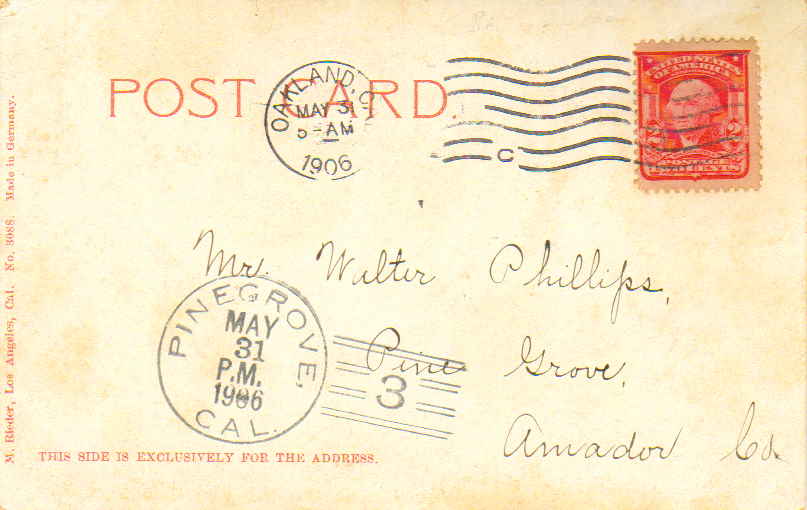 POST CARD
OAKLAND, CA
MAY 31
5-AM
1906
C
UNITED STATES
OF AMERICA
2 2
POSTAGE
TWO CENTS
Mr. Walter Phillips,
Pine Grove,
Amador Co.
PINEGROVE,
MAY
31
P.M.
1906
CAL.
3
THIS SIDE IS EXCLUSIVELY FOR THE ADDRESS.
M. Rieder, Los Angeles, Cal. No. 3088. Made in Germany.